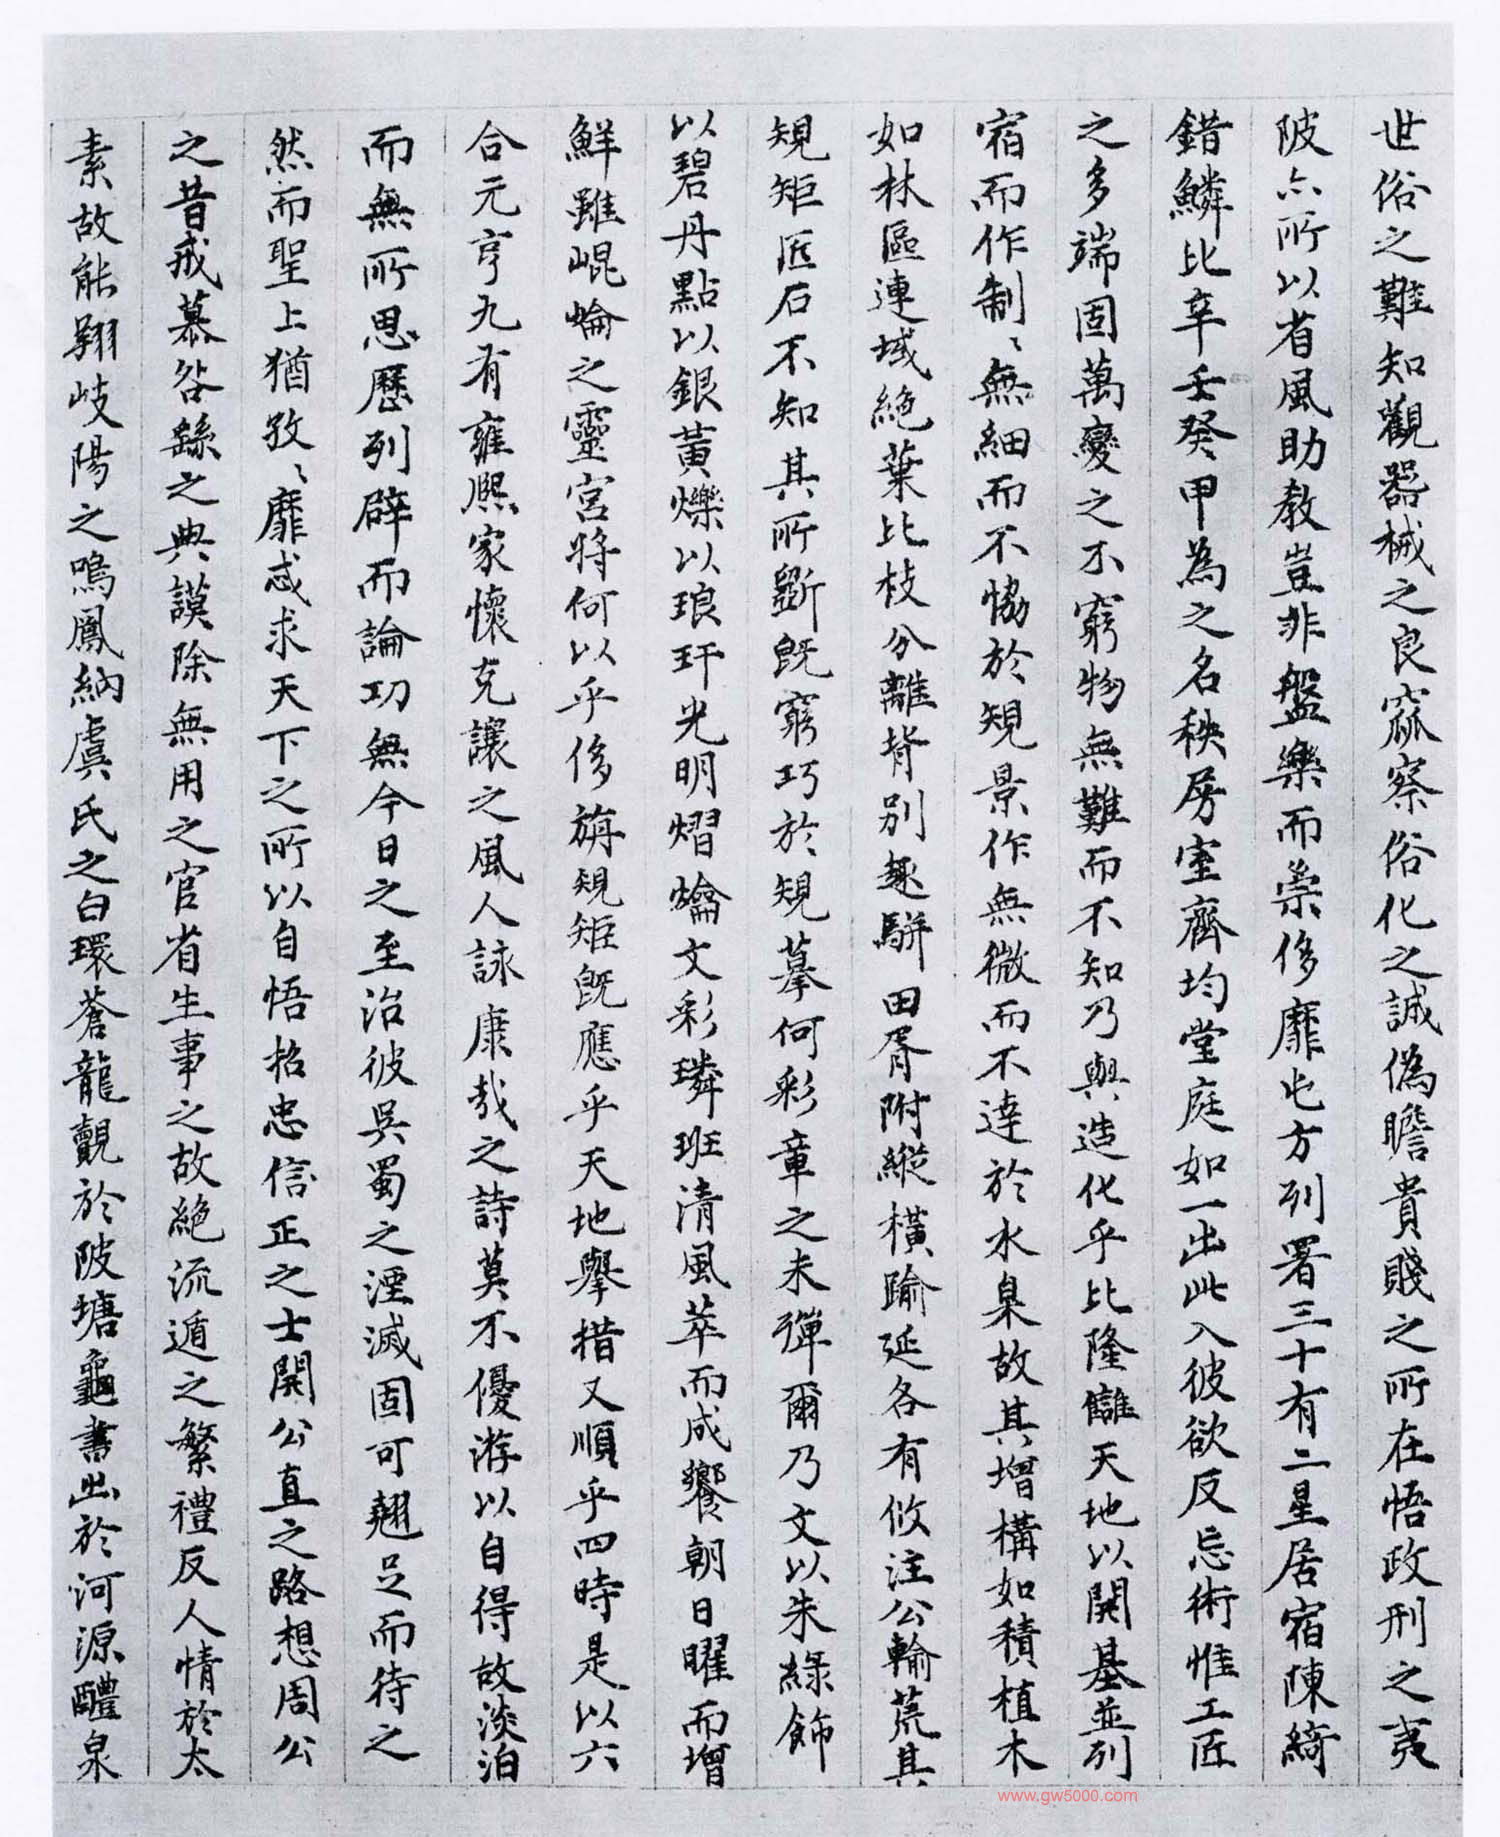 世俗之難知觀器械之良窳察俗化之誠偽瞻貴賤之所在悟政刑之夷
陂亦所以省風助教豈非盤樂而崇侈靡屯方列署三十有二星居宿陳綺
錯鱗比辛壬癸甲為之名秩房室齊均堂庭如一出此入彼欲反忘術惟工匠
之多端固萬變之不窮物無難而不知乃與造化乎比隆讎天地以開基並列
宿而作制〻無細而不恊於規景作無微而不達於水臬故其增構如積植木
如林區連域絕葉比枝分離背別趣駢田胥附縱橫踰延各有攸注公輸荒其
規矩匠石不知其所斲既窮巧於規摹何彩章之未殫爾乃文以朱綠飾
以碧丹點以銀黃爍以琅玕光明熠爚文彩璘班清風萃而成響朝日曜而增
鮮雖崐崘之靈宮將何以乎侈旃規矩既應乎天地舉措又順乎四時是以六
合元亨九有雍熙家懷克讓之風人詠康哉之詩莫不優游以自得故淡泊
而無所思歷列辟而論功無今日之至治彼吳蜀之湮滅固可翹足而待之
然而聖上猶孜〻靡忒求天下之所以自悟招忠信正之士開公直之路想周公
之昔戒慕咎繇之典謨除無用之官省生事之故絕流遁之繁禮反人情於太
素故能翔岐陽之鳴鳳納虞氏之白環蒼龍覿於陂塘龜書出於河源醴泉
www.gw5000.com